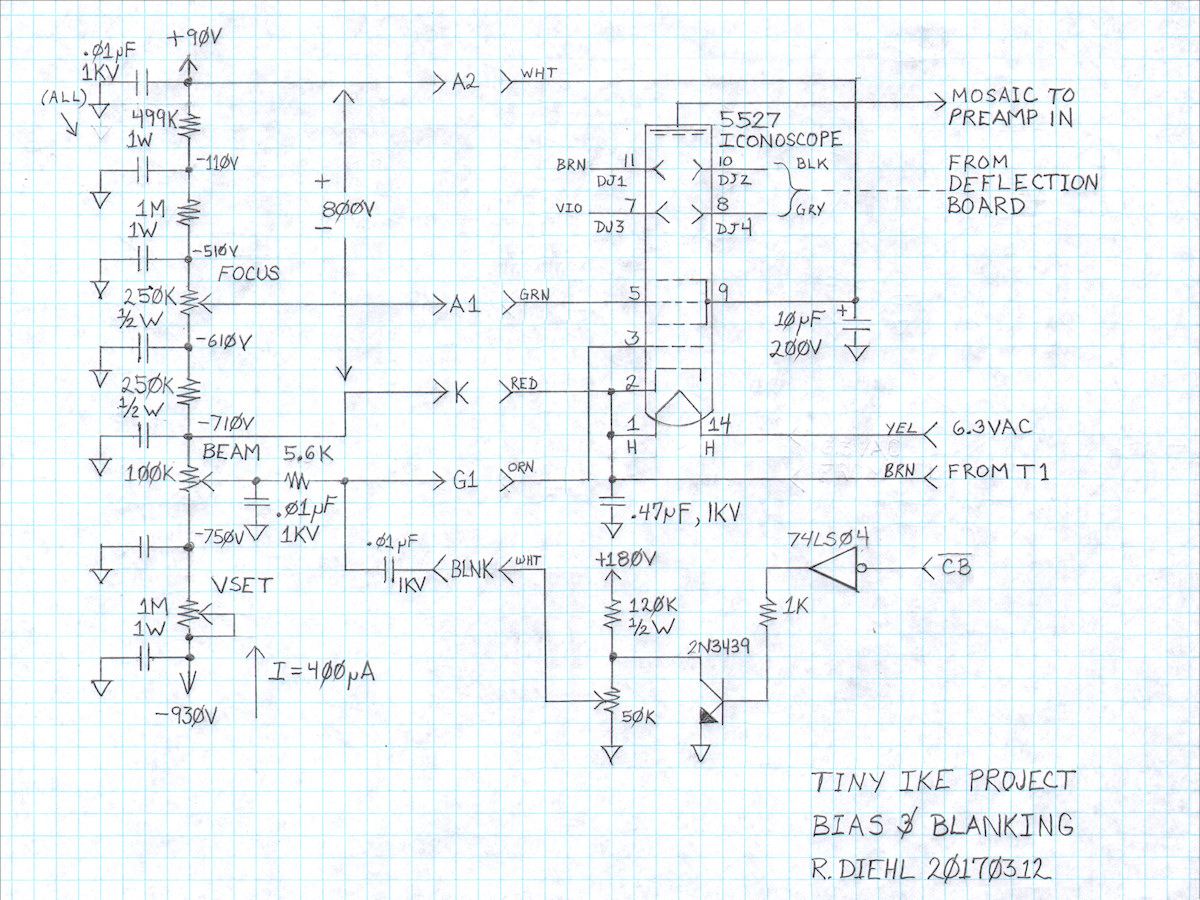 +90V
.01µF
1KV
(ALL)
499K
1W
-110V
1M
1W
-510V
FOCUS
250K
½W
-610V
250K
½W
-710V
BEAM
5.6K
100K
.01µF
1KV
-750V
VSET
1M
1W
I=400µA
-930V
+
800V
-
.01µF
1KV
A2
WHT
A1
GRN
K
RED
G1
ORN
BLNK
WHT
5527
ICONOSCOPE
MOSAIC TO
PREAMP IN
BRN
11
DJ1
10
DJ2
BLK
VIO
7
DJ3
8
DJ4
GRY
FROM
DEFLECTION
BOARD
5
9
3
2
1
H
14
H
+
10µF
200V
YEL
6.3VAC
BRN
FROM T1
.47µF, 1KV
+180V
120K
½W
50K
2N3439
1K
74LS04
C̅B̅
TINY IKE PROJECT
BIAS & BLANKING
R. DIEHL 20170312